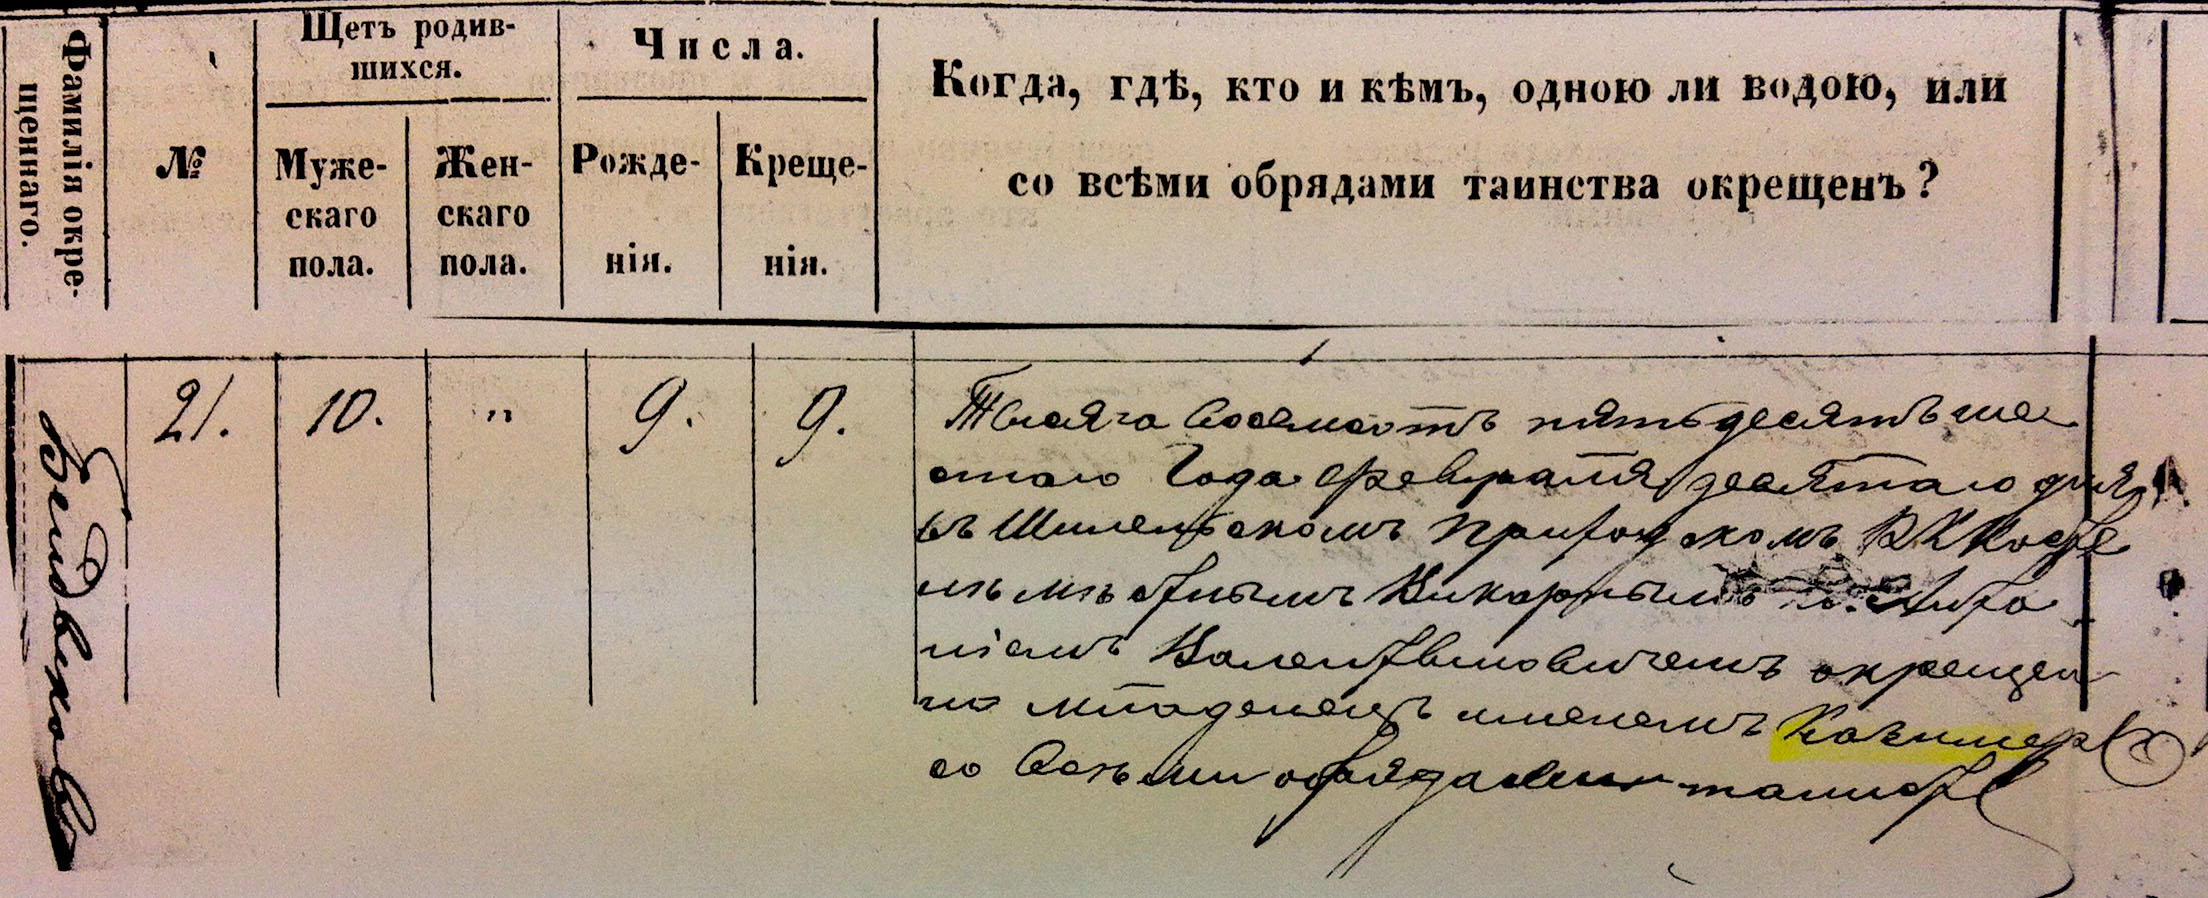 Фамилія окре-
щеннаго.
№
Щетъ родив-
шихся.
Муже-
скаго
пола.
Жен-
скаго
пола.
Числа.
Рожде-
нія.
Креще-
нія.
Когда, гдѣ, кто и кѣмъ, одною ли водою, или
со всѣми обрядами таинства окрещенъ?
21.
10.
"
9.
9.
Тысяча восемьсотъ пятьдесятъ ше
стаго Года февраля девятаго дня
въ Шилельскомъ приходскомъ РК Косте
лѣ мѣстнымъ Викарнымъ
окрещен
младенецъ именемъ Казимер
со всѣми обрядами таинст